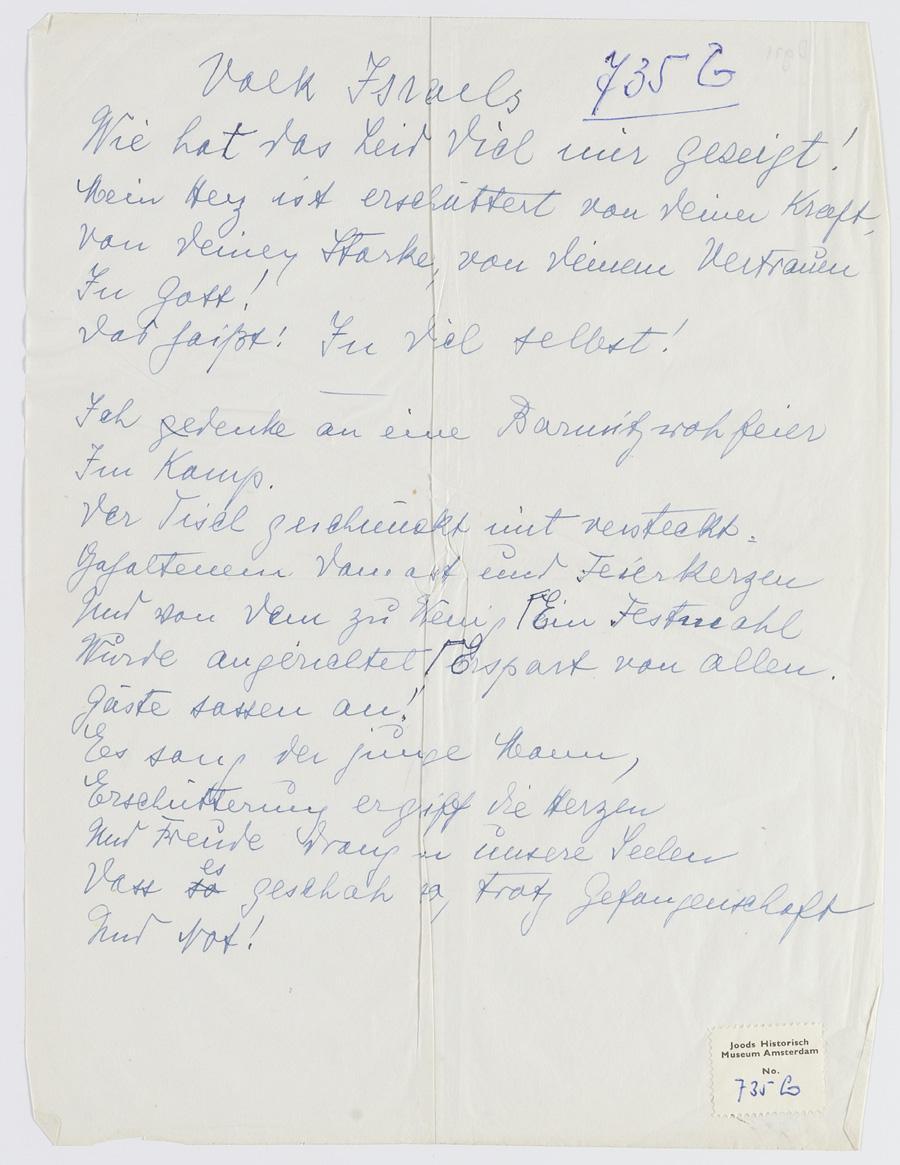 Volk Israels
735 G
Wie hat das Leid dich mir gezeigt!
Mein Herz ist erschüttert von deiner Kraft,
von deiner Starke, von deinem Vertrauen
In Gott!
das haißt: In dich selbst!
Ich gedenke an eine Barmitzwohfeier
Im Kamp.
der Tisch geschmückt mit versteckt-
Gehaltenem Damast und Feierkerzen
Und von dem zu Ein Festmahl
Wurde angerichtet Erspart von allen.
Gäste sassen an!
Es sang der junge Mann,
Erschütterung ergiff die Herzen
Und Freude drang in unsere Seelen
Dass so es geschah so, trotz Gefangenschaft
Und Not!
Joods Historisch
Museum Amsterdam
No.
735 G